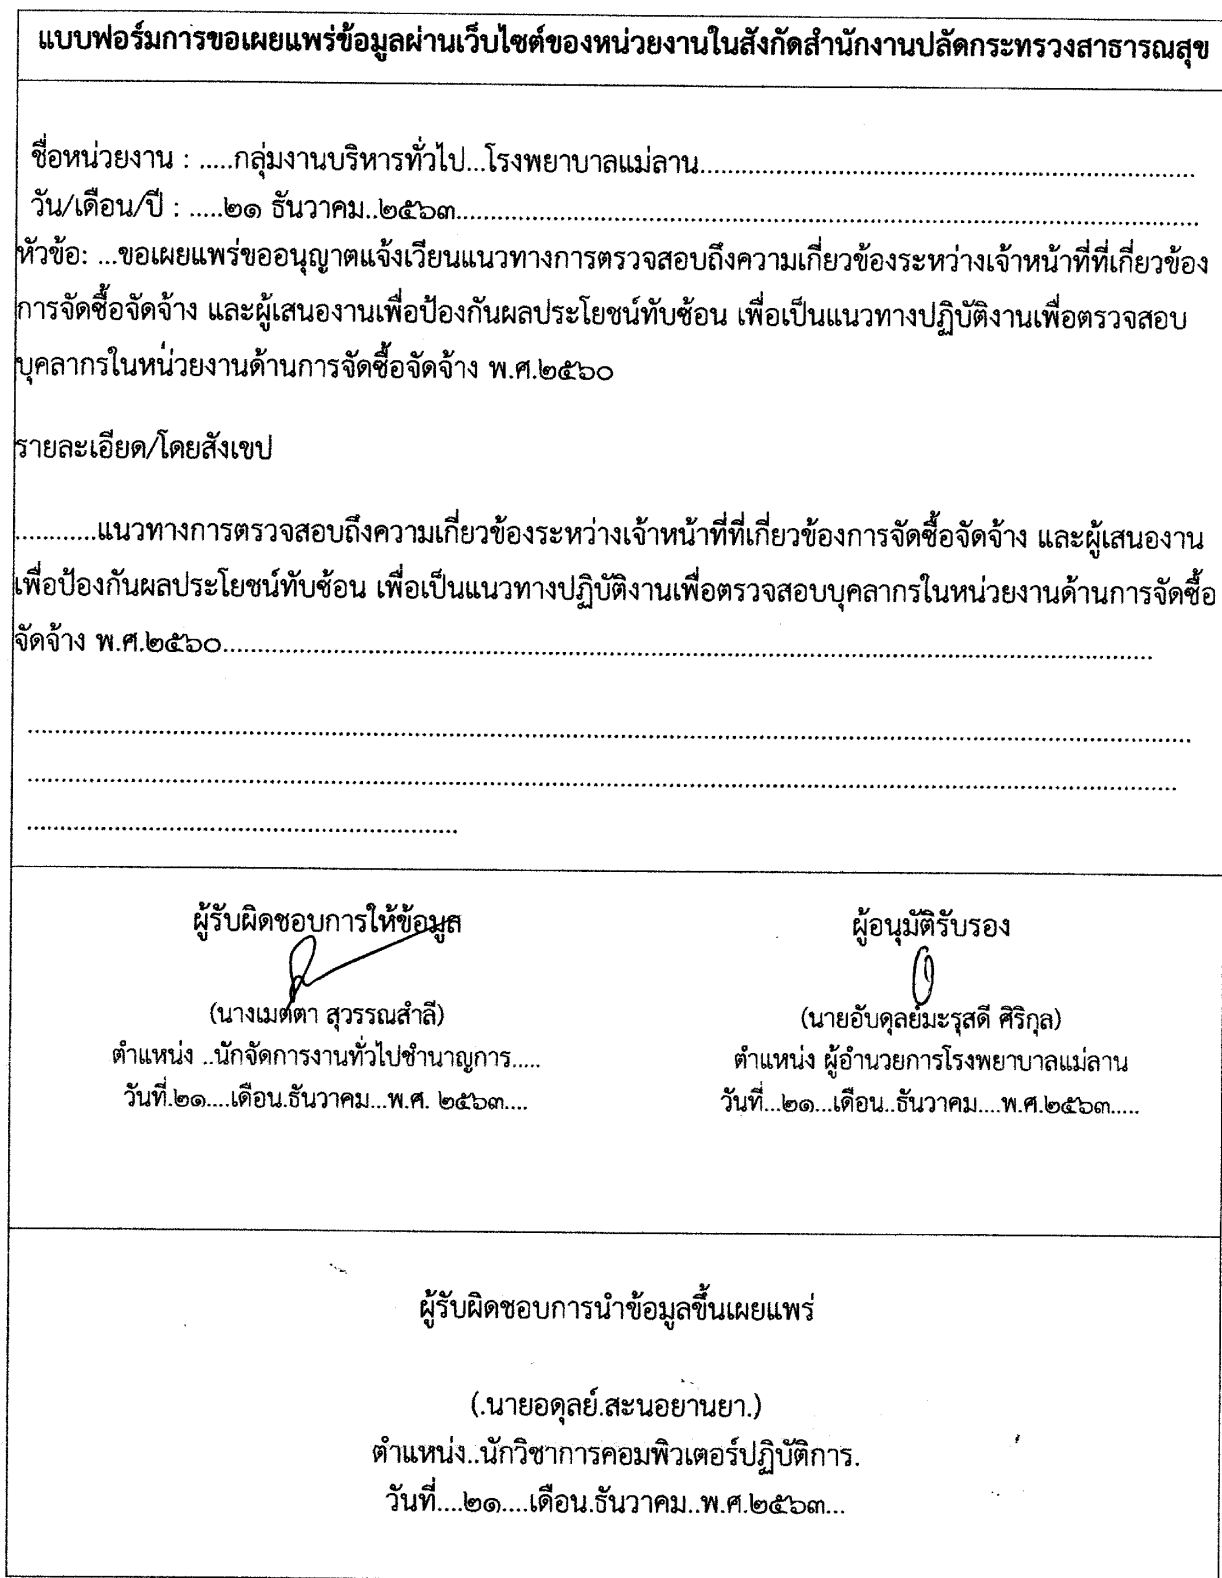 แบบฟอร์มการขอเผยแพร่ข้อมูลผ่านเว็บไซต์ของหน่วยงานในสังกัดสำนักงานปลัดกระทรวงสาธารณสุข
ชื่อหน่วยงาน : .....กลุ่มงานบริหารทั่วไป...โรงพยาบาลแม่ลาน......................................................................
วัน/เดือน/ปี : .....๒๑ ธันวาคม..๒๕๖๓.........................................................................................................
หัวข้อ: ...ขอเผยแพร่ขออนุญาตแจ้งเวียนแนวทางการตรวจสอบถึงความเกี่ยวข้องระหว่างเจ้าหน้าที่ที่เกี่ยวข้อง
การจัดซื้อจัดจ้าง และผู้เสนองานเพื่อป้องกันผลประโยชน์ทับซ้อน เพื่อเป็นแนวทางปฏิบัติงานเพื่อตรวจสอบ
บุคลากรในหน่วยงานด้านการจัดซื้อจัดจ้าง พ.ศ.๒๕๖๐
รายละเอียด/โดยสังเขป
............แนวทางการตรวจสอบถึงความเกี่ยวข้องระหว่างเจ้าหน้าที่ที่เกี่ยวข้องการจัดซื้อจัดจ้าง และผู้เสนองาน
เพื่อป้องกันผลประโยชน์ทับซ้อน เพื่อเป็นแนวทางปฏิบัติงานเพื่อตรวจสอบบุคลากรในหน่วยงานด้านการจัดซื้อ
จัดจ้าง พ.ศ.๒๕๖๐.......................................................................................................................................
ผู้รับผิดชอบการให้ข้อมูล
(นางเมตตา สุวรรณสำลี)
ตำแหน่ง ..นักจัดการงานทั่วไปชำนาญการ.....
วันที่.๒๑....เดือน.ธันวาคม...พ.ศ. ๒๕๖๓....
ผู้อนุมัติรับรอง
(นายอับดุลย์มะรุสดี ศิริกุล)
ตำแหน่ง ผู้อำนวยการโรงพยาบาลแม่ลาน
วันที่...๒๑...เดือน..ธันวาคม....พ.ศ.๒๕๖๓.....
ผู้รับผิดชอบการนำข้อมูลขึ้นเผยแพร่
(.นายอดุลย์.สะนอยานยา.)
ตำแหน่ง..นักวิชาการคอมพิวเตอร์ปฏิบัติการ.
วันที่....๒๑....เดือน.ธันวาคม..พ.ศ.๒๕๖๓...